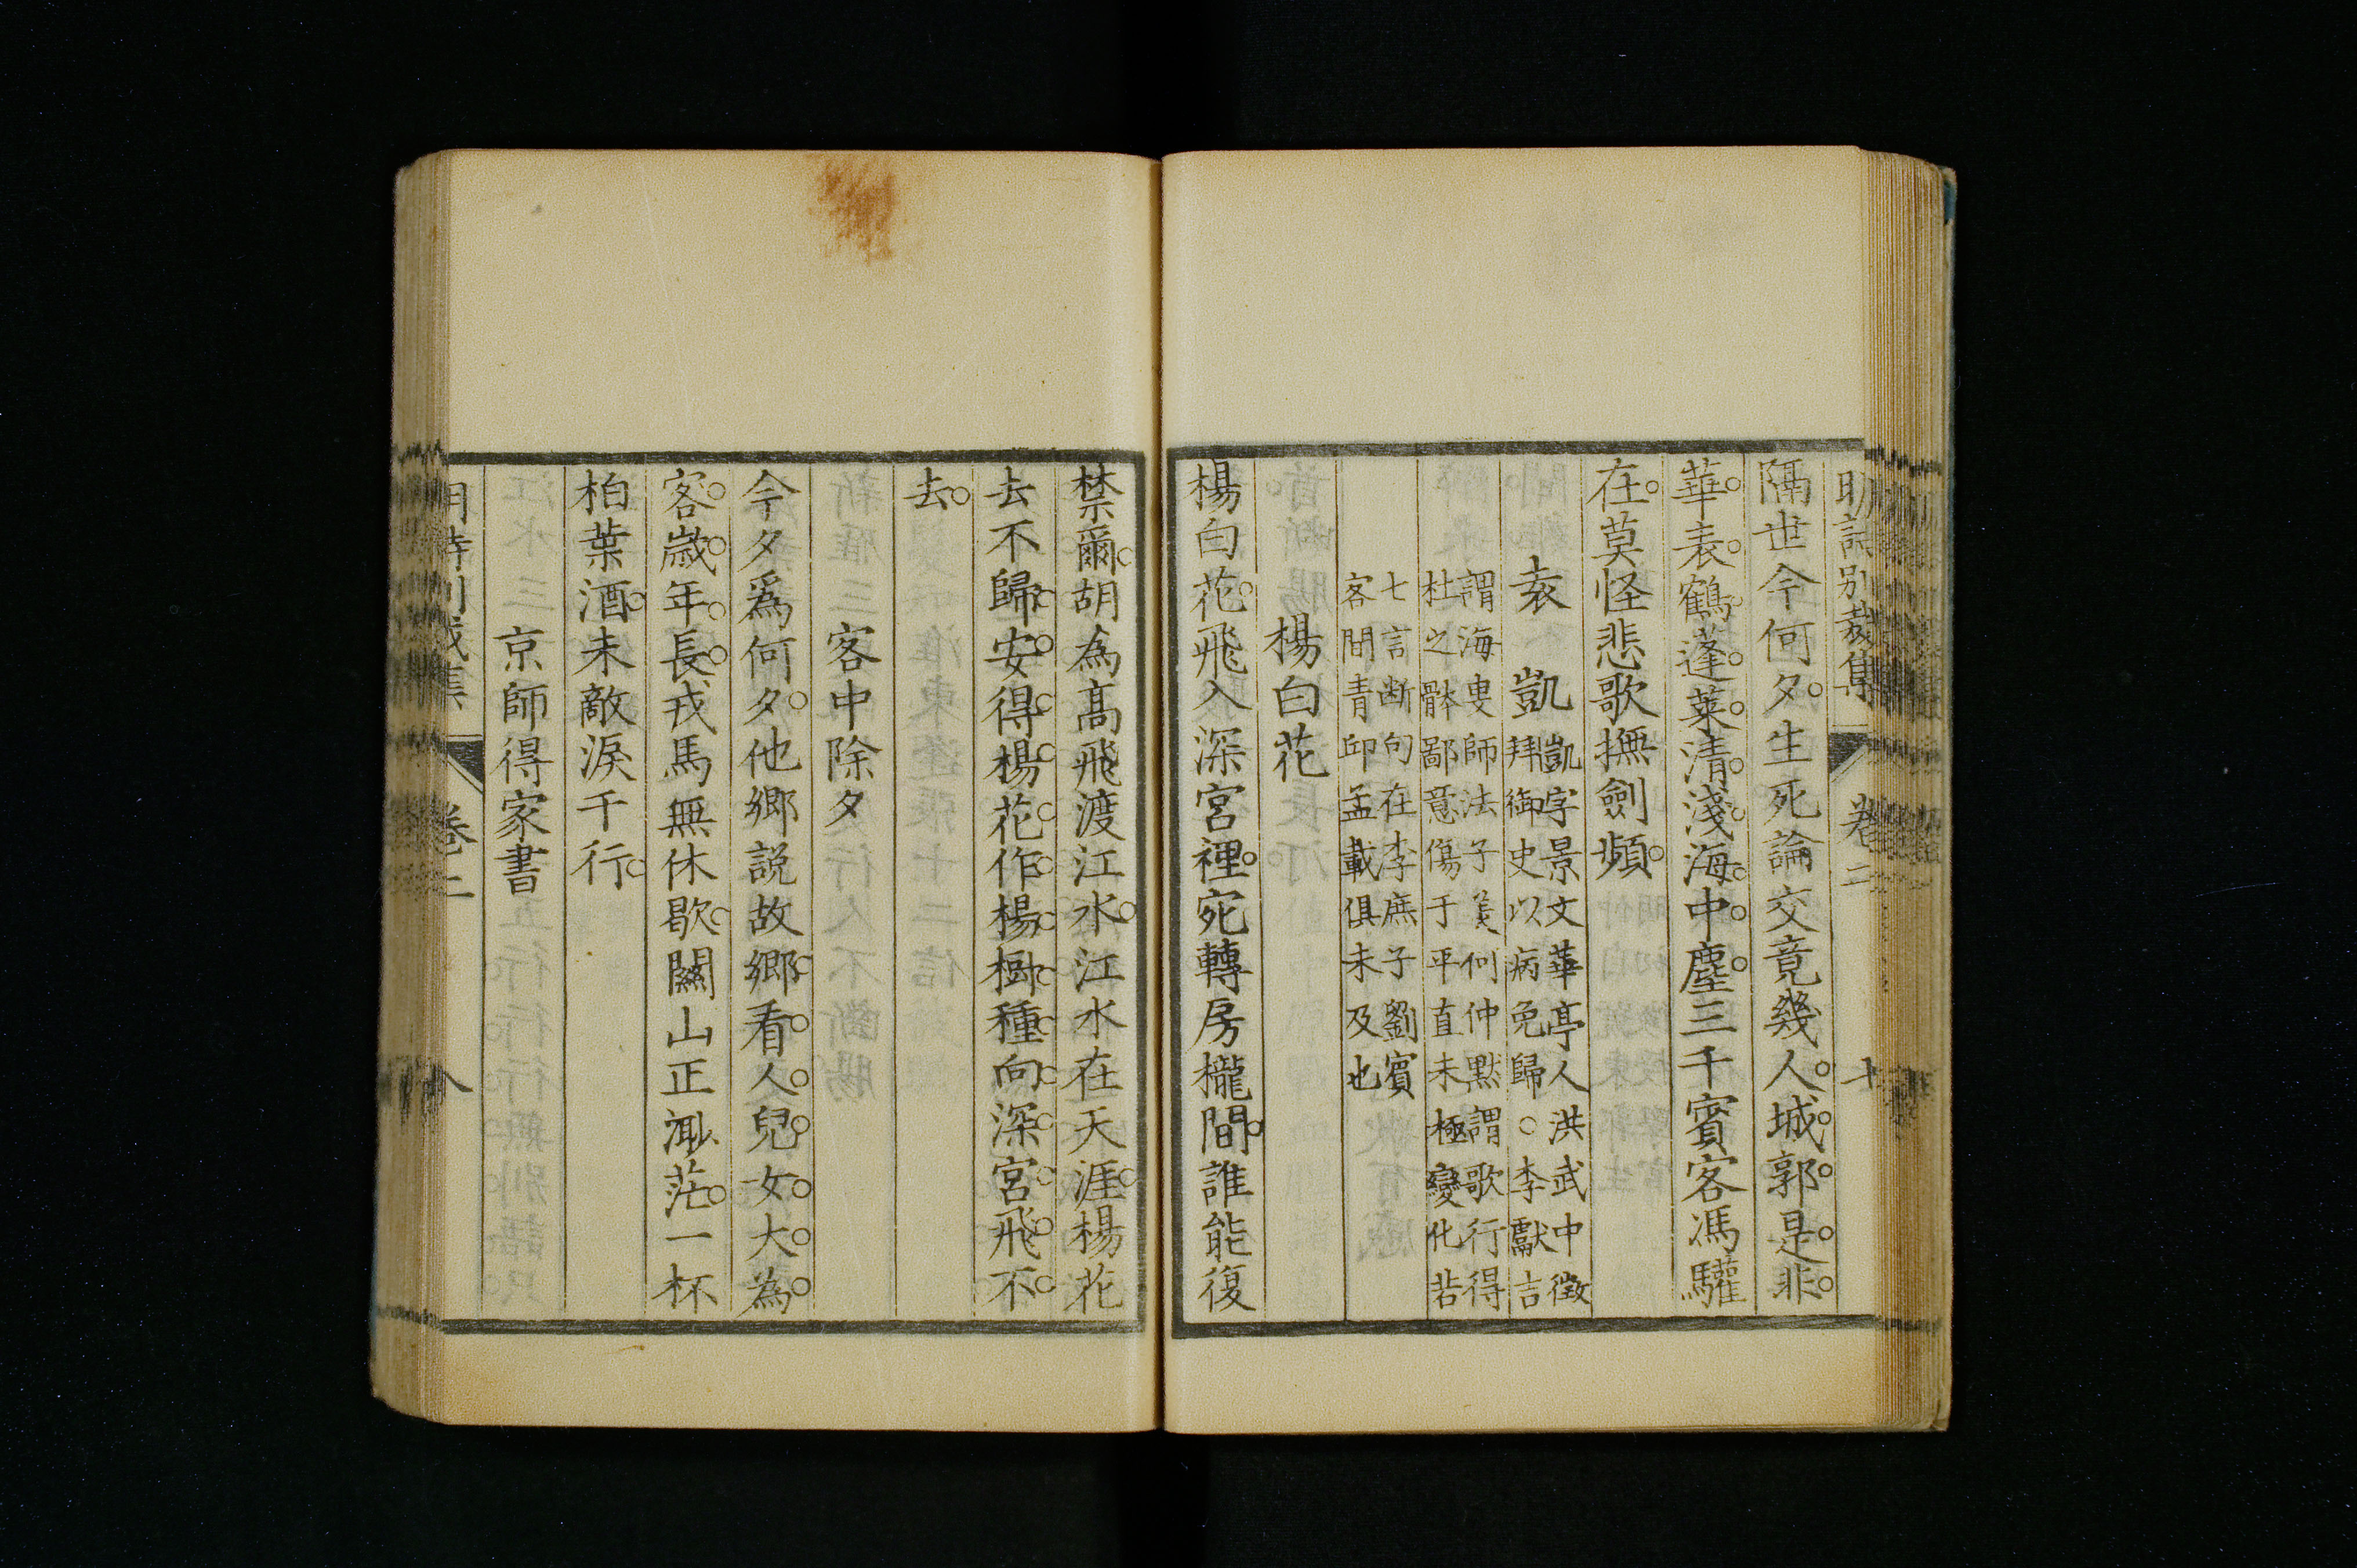 明詩別裁集 卷二 十
隔世今何夕生死論交竟幾人城郭是非
華表鶴蓬萊清淺海中塵三千賓客馮驩
在莫怪悲歌撫劍頻
袁 凱 凱字景文華亭人洪武中徵
拜御史以病免歸○李獻吉
謂海叟師法子美何仲默謂歌行得
杜之骵鄙意傷于平直未極變化若
七言断句在李庶子劉賓
客間青邱孟載俱未及也
楊白花
楊白花飛入深宮裡宛轉房櫳間誰能復
禁爾胡為高飛渡江水江水在天涯楊花
去不歸安得楊花作楊樹種向深宮飛不
去
客中除夕
今夕爲何夕他鄉説故鄉看人兒女大為
客歲年長戎馬無休歇關山正渺茫一杯
柏葉酒未敵淚千行
京師得家書
明詩別裁集 卷二